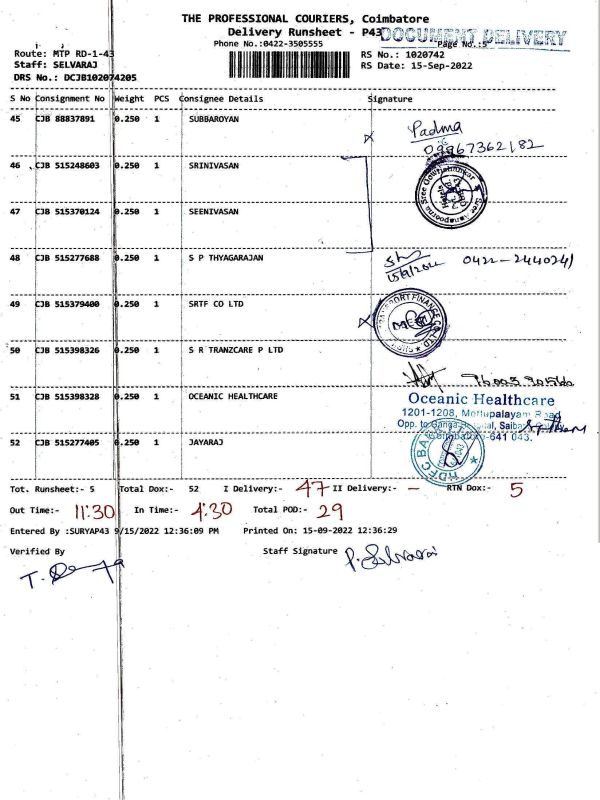 THE PROFESSIONAL COURIERS, Coimbatore
Delivery Runsheet - P43
DOCUMENT DELIVERY
Phone No.:0422-3505555
Page No.:5
Route: MTP RD-1-43
Staff: SELVARAJ
DRS No.: DCJB102074205
RS No.: 1020742
RS Date: 15-Sep-2022
S No Consignment No Weight PCS Consignee Details Signature
45 CJB 88837891 0.250 1 SUBBAROYAN
Padma
46 CJB 515248603 0.250 1 SRINIVASAN
47 CJB 515370124 0.250 1 SEENIVASAN
48 CJB 515277688 0.250 1 S P THYAGARAJAN
0422-2440241
49 CJB 515379400 0.250 1 SRTF CO LTD
50 CJB 515398326 0.250 1 S R TRANZCARE P LTD
51 CJB 515398328 0.250 1 OCEANIC HEALTHCARE
Oceanic Healthcare
1201-1208, Mettupalayam Road
Opp. to Ganga Hospital, Saibaba
Coimbatore-641 043.
52 CJB 515277405 0.250 1 JAYARAJ
HDFC BANK
Tot. Runsheet:- 5 Total Dox:- 52 I Delivery:- 47 II Delivery:- - RTN Dox:- 5
Out Time:- 11:30 In Time:- 4:30 Total POD:- 29
Entered By :SURYAP43 9/15/2022 12:36:09 PM Printed On: 15-09-2022 12:36:29
Verified By Staff Signature
P. Selvaraj